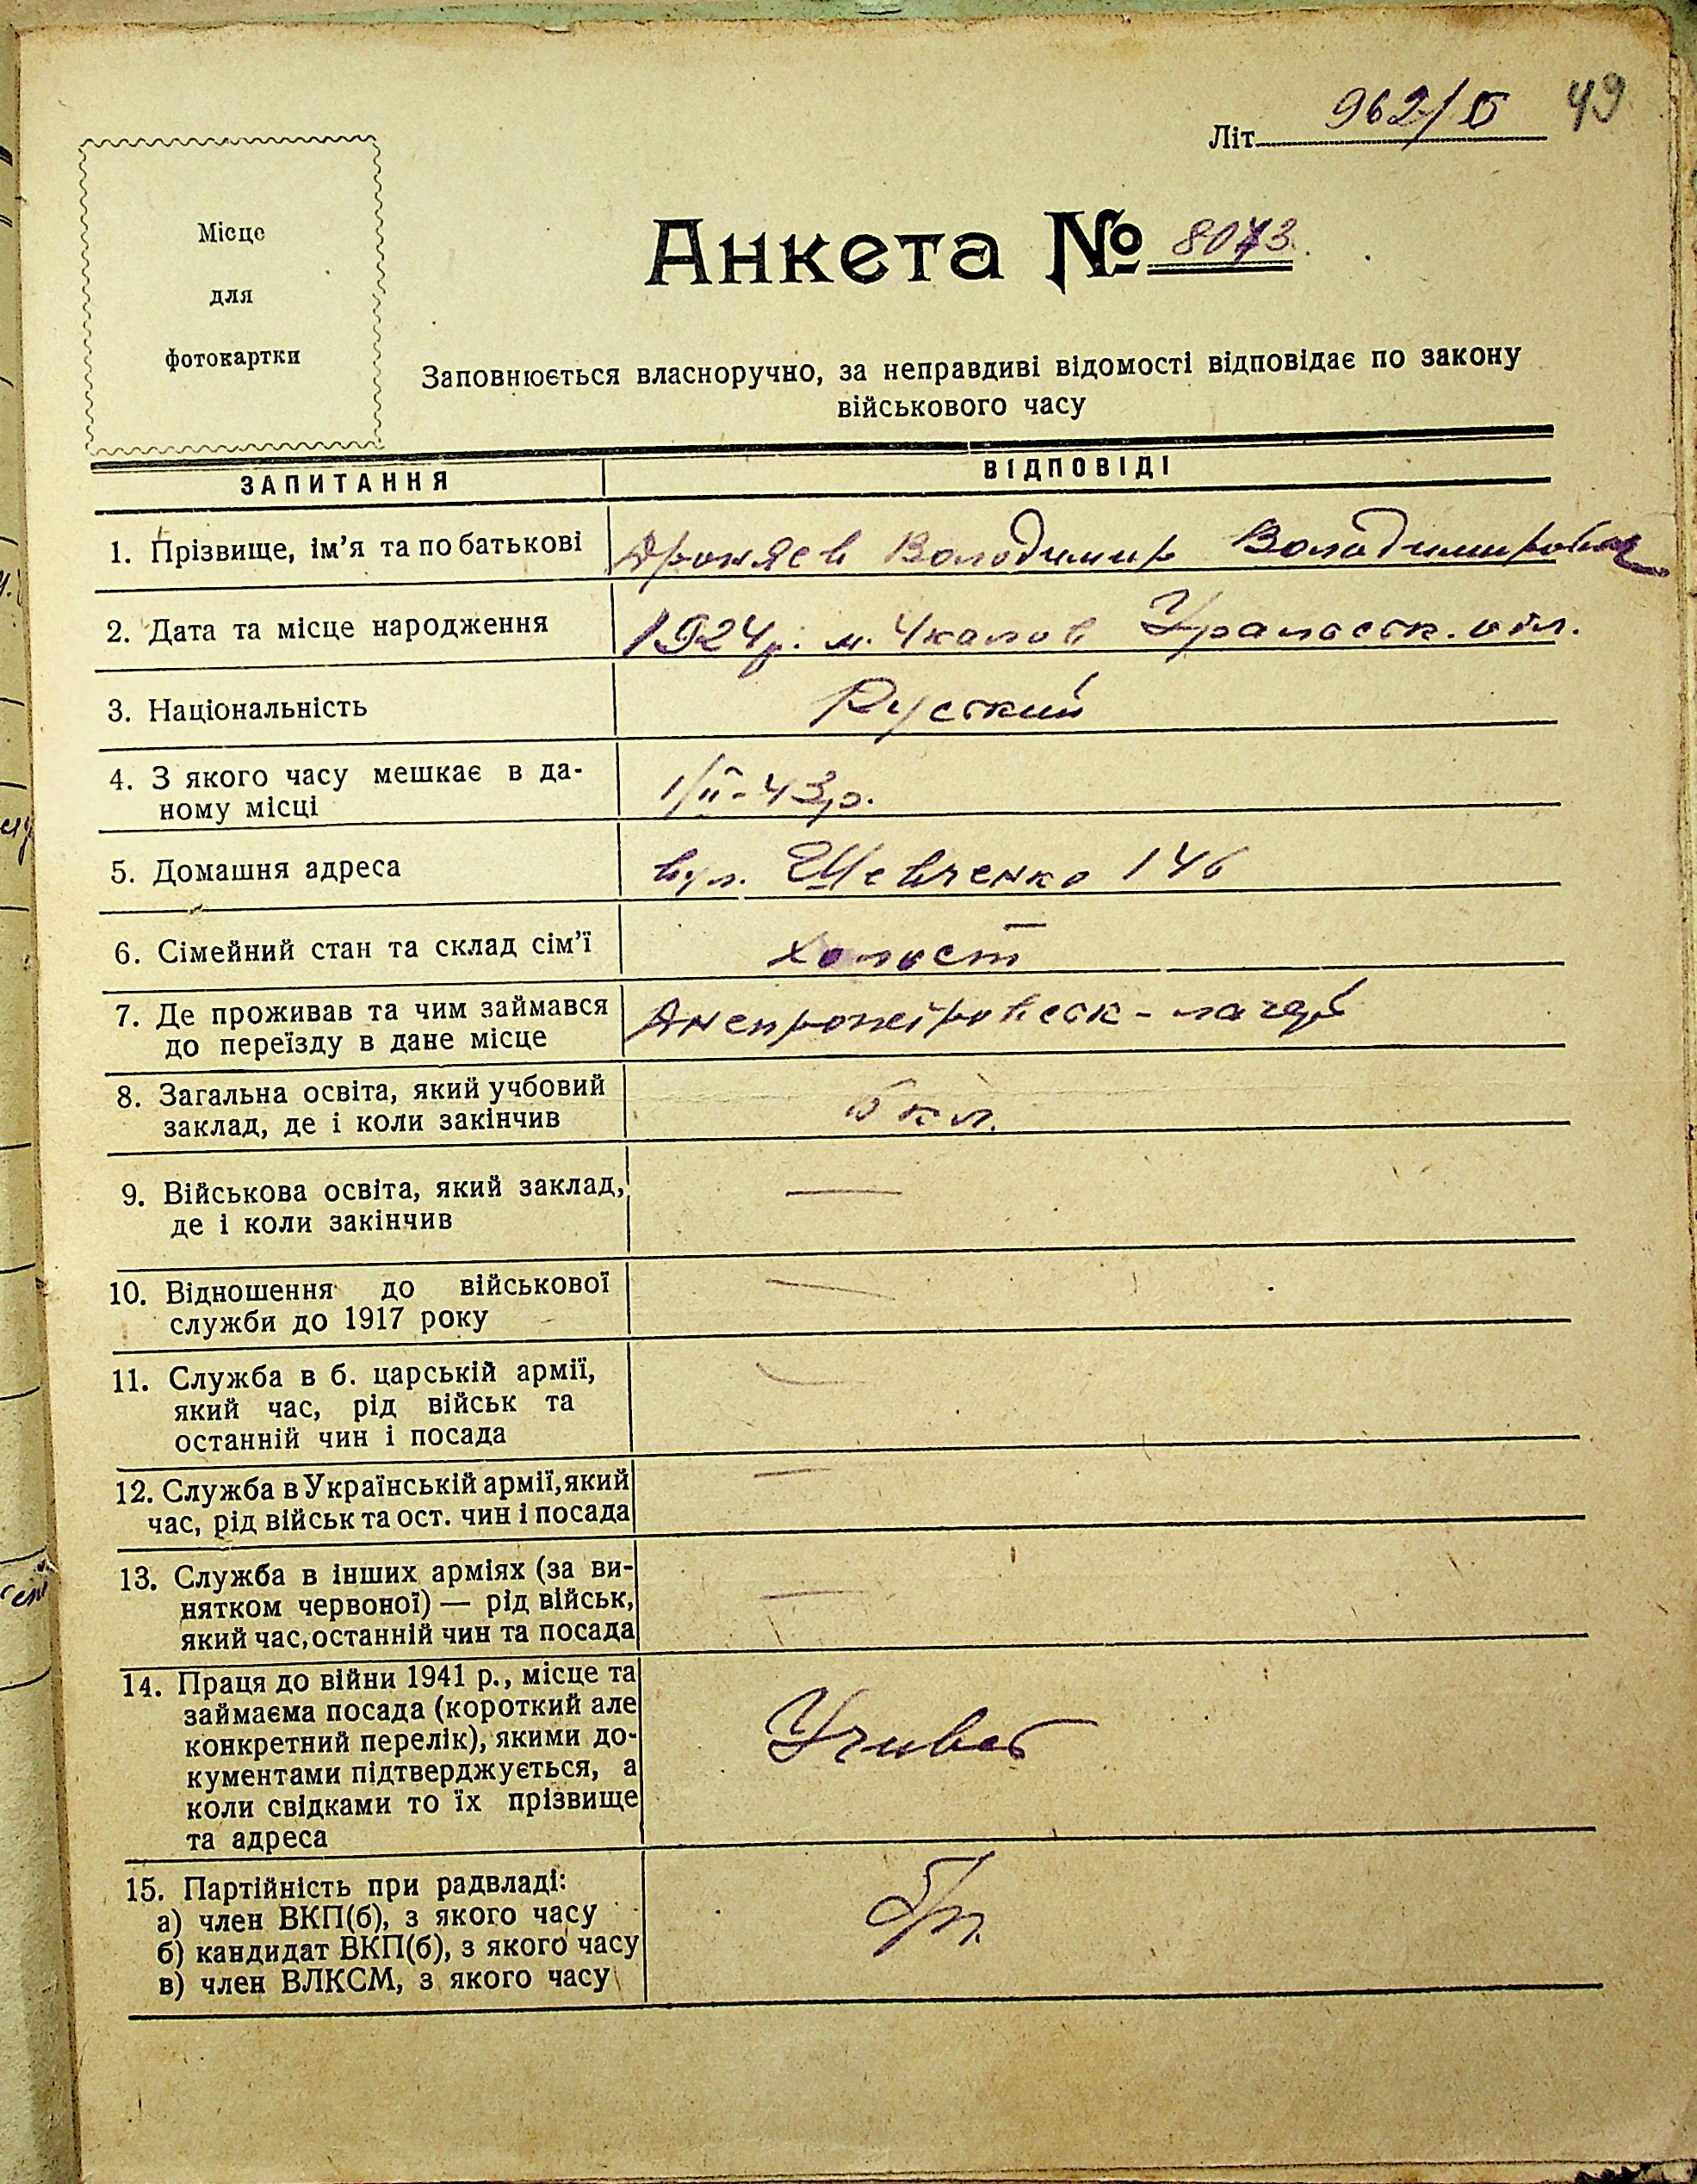 49
Літ. 962/Б
Місце
для
фотокартки
Анкета № 8073.
Заповнюється власноручно, за неправдиві відомості відповідає по закону
військового часу
ЗАПИТАННЯ ВІДПОВІДІ
1. Прізвище, ім'я та по батькові Володимир Володимирович
2. Дата та місце народження 1924 р. м. Чкалов Уральськ. обл.
3. Національність Руський
4. З якого часу мешкає в да-
ному місці 1/II-43 р.
5. Домашня адреса вул. Шевченко 146
6. Сімейний стан та склад сім'ї холост
7. Де проживав та чим займався Днепропетровськ -
до переїзду в дане місце
8. Загальна освіта, який учбовий
заклад, де і коли закінчив кл.
9. Військова освіта, який заклад, —
де і коли закінчив
10. Відношення до військової —
служби до 1917 року
11. Служба в б. царській армії, —
який час, рід військ та
останній чин і посада
12. Служба в Українській армії, який —
час, рід військ та ост. чин і посада
13. Служба в інших арміях (за ви-
нятком червоної) — рід військ, —
який час, останній чин та посада
14. Праця до війни 1941 р., місце та
займаєма посада (короткий але
конкретний перелік), якими до- Учивсь
кументами підтверджується, а
коли свідками то їх прізвище
та адреса
15. Партійність при радвладі:
а) член ВКП(б), з якого часу б/п.
б) кандидат ВКП(б), з якого часу
в) член ВЛКСМ, з якого часу